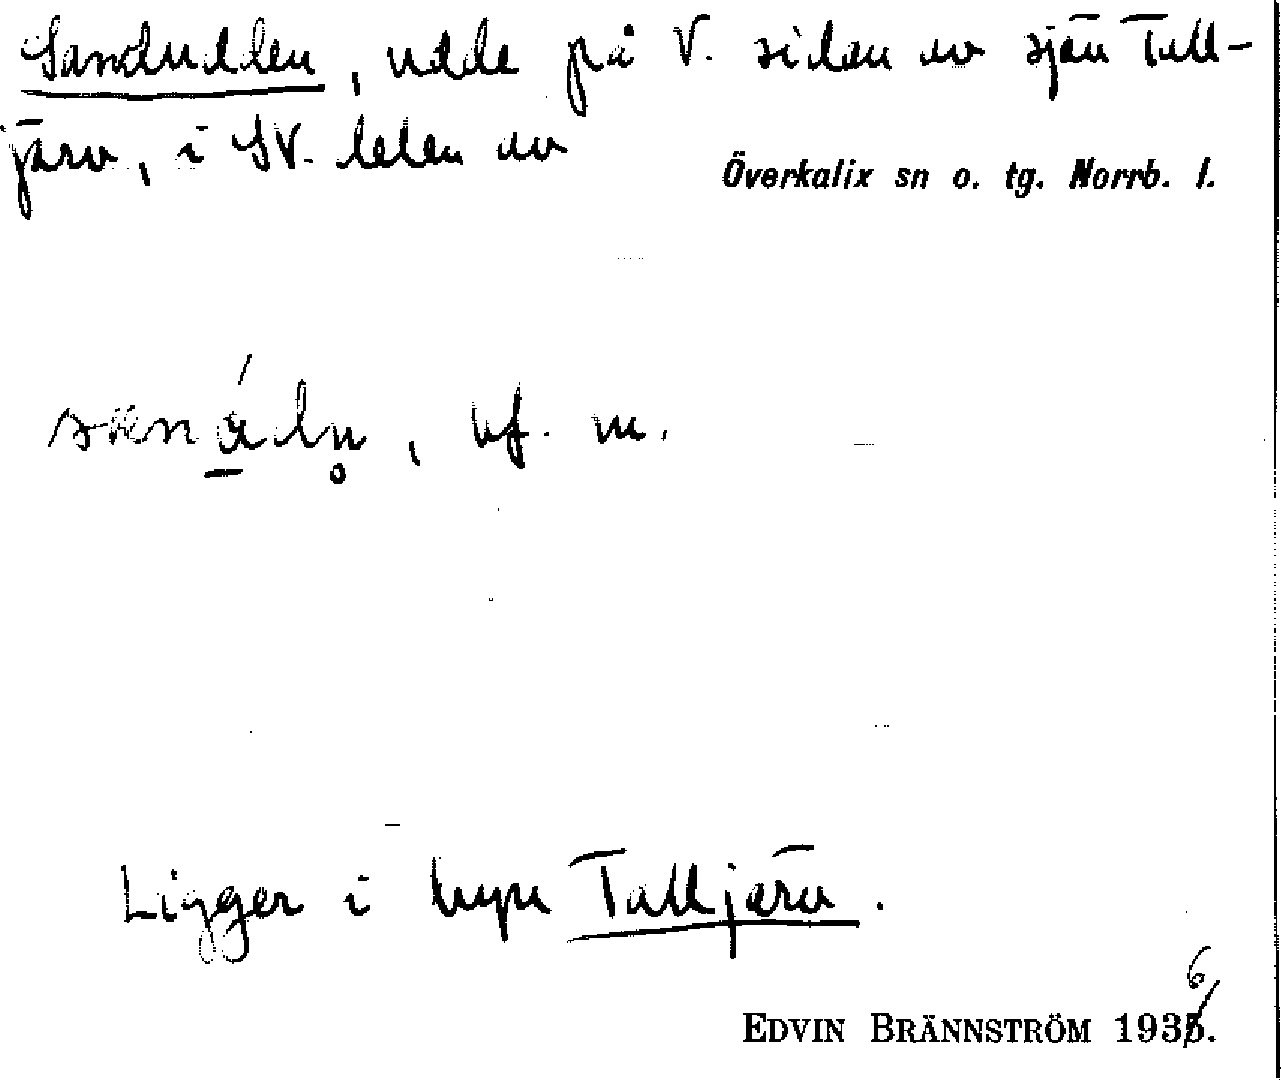 Sandudden, udde på V. sidan av sjön Tall-
järv, i SV. delen av
Överkalix sn o. tg. Norrb. l.
, bf. m.
Ligger i byn Talljärv.
6
EDVIN BRÄNNSTRÖM 1935.